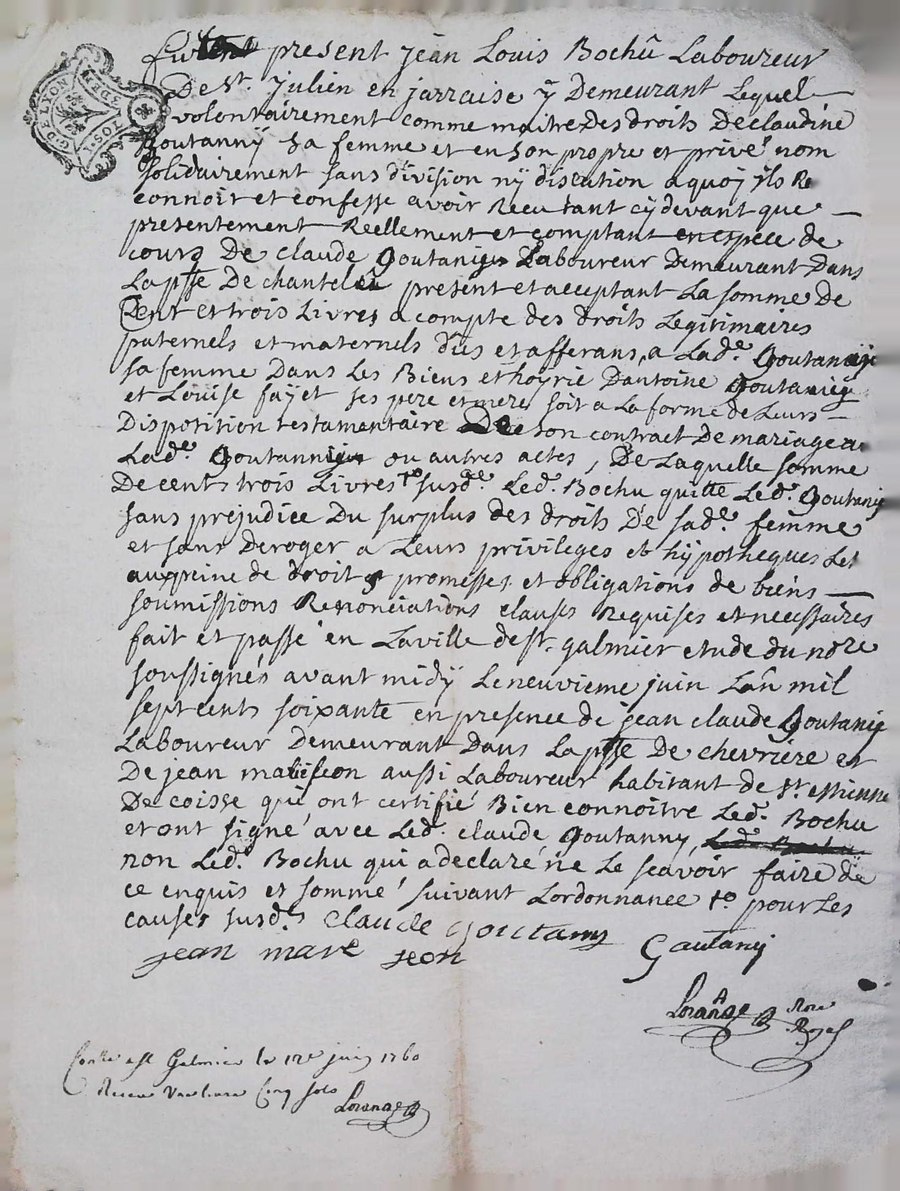 G. DE LYON
3 DEN.
1 SOL
present jean Louis Bochû Laboureur
De st. julien en jarraise ÿ Demeurant Lequel
volontairement comme maitre Des droits De claudine
Goutannÿ sa femme et en son propre et privé nom
solidairement sans division nÿ discution a quoj ils Re
connoit et confesse avoir Recu tant cÿ devant que
presentement Reellement et comptant en espece de
cours De claude Goutanÿ Laboureur Demeurant Dans
La psse De chantelet present et acceptant La somme De
Cent et trois Livres a compte des droits Legitimaires
paternels et maternels dus et afferans, a Lade. Goutannÿ
sa femme Dans Les Biens et hoÿrie Dantoine Goutanÿ
et Louise faÿet ses pere et mere soit a La forme de Leurs
Disposition testamentaire De son contract De mariage a
Lade. Goutannÿ ou autres actes, De Laquelle somme
De cent trois Livres to susde. Led. Bochu quitte Led. Goutanÿ
sans prejudice Du surplus des droits De sade. femme
et sans Deroger a Leurs privileges et hÿpotheques Les
aux peine de droit promesses et obligations de biens
soumissions Renonciations clauses Requises et necessaires
fait et passé en La ville de st. galmier etude du nore
soussignés avant midÿ Le neuvieme juin Lan mil
sept cents soixante en presence de jean claude Goutanÿ
Laboureur Demeurant Dans La psse De chevriére et
De jean aussi Laboureur habitant de st estienne
De coisse qui ont certifié Bien connoitre Led. Bochu
et ont signé avec Led. claude Goutanny, Led. Bochu
non Led. Bochu qui a declaré ne Le scavoir faire de
ce enquis et sommé suivant Lordonnance to pour Les
causes susd.s Claude Goutanÿ
jean mare jeon Gautanÿ
Lorange Nore
Royal
Conlle a st Galmier le 12e juin 1760
Receu Une livre Cinq sols
Lorange